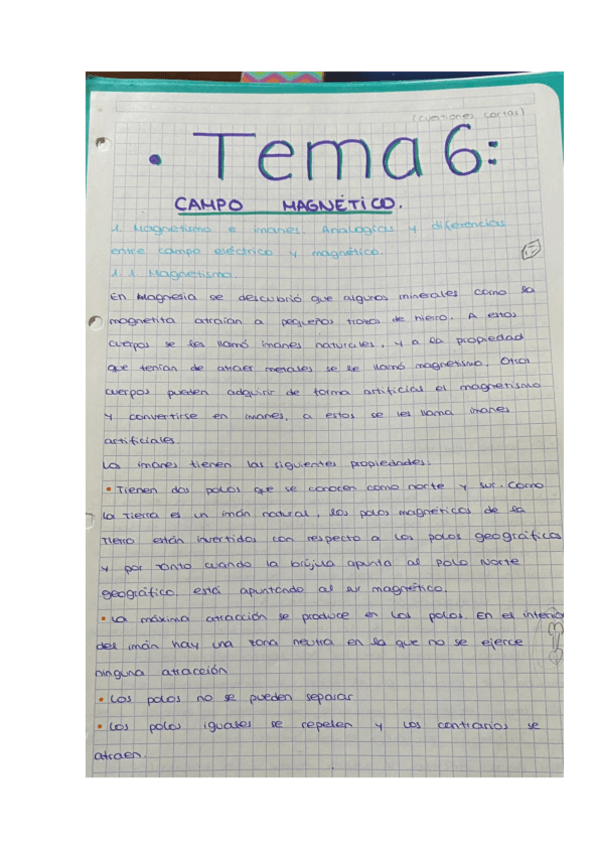 (cuestiones cortas)
• Tema 6:
CAMPO MAGNÉTICO.
1. Magnetismo e imanes. Analogías y diferencias
entre campo eléctrico y magnético.
1.1. Magnetismo.
En Magnesia se descubrió que algunos minerales como la
magnetita atraían a pequeños trozos de hierro. A estos
cuerpos se les llamó imanes naturales, y a la propiedad
que tenían de atraer metales se le llamó magnetismo. Otros
cuerpos pueden adquirir de forma artificial el magnetismo
y convertirse en imanes, a estos se les llama imanes
artificiales.
Los imanes tienen las siguientes propiedades:
• Tienen dos polos que se conocen como norte y sur. Como
la Tierra es un imán natural, los polos magnéticos de la
Tierra están invertidos con respecto a los polos geográficos
y por tanto cuando la brújula apunta al Polo Norte
geográfico está apuntando al sur magnético.
• La máxima atracción se produce en los polos. En el interior
del imán hay una zona neutra en la que no se ejerce
ninguna atracción
• Los polos no se pueden separar
• Los polos iguales se repelen y los contrarios se
atraen.